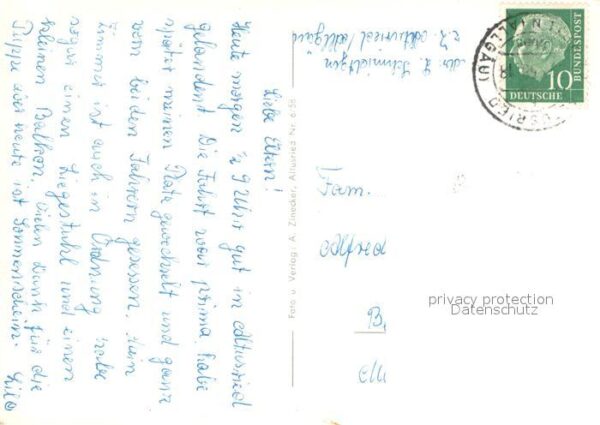 abs. L. Schmidtgen
z.Z. Altusried / Allgäu
Liebe Eltern!
Heute morgen ½ 9 Uhr gut in Altusried
gelandet. Die Fahrt war prima. Habe
später meinen Platz gewechselt und ganz
vorn bei den Fahrern gesessen. Mein
Zimmer ist auch in Ordnung habe
sogar einen Liegestuhl und einen
kleinen Balkon. Vielen Dank für die
Tippe aber heute ist Sonnenschein. Lilo
Foto u. Verlag: A. Zinecker, Altusried Nr. 6/58
Fam.
Alfred
B.
10
DEUTSCHE
BUNDESPOST
ALTUSRIED
(ALLGÄU)
privacy protection
Datenschutz